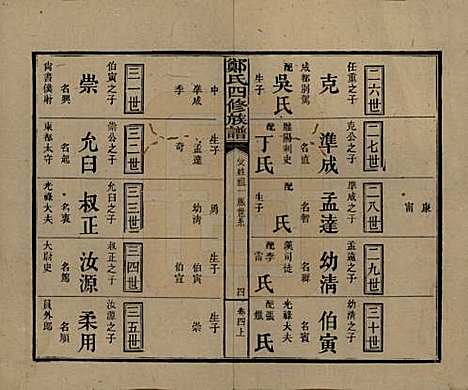 鄭氏四修族譜
四
卷四上
二六世
任重之子
克
成都別駕
配
吳氏
生子
準成
季
二七世
克公之子
準成
名直
睢陽刺史
配
丁氏
生子
孟達
奇
二八世
準成之子
孟達
名智
配
氏
生子
幼清
勇
二九世
孟達之子
幼清
名
漢司徒
配李
雷
氏
生子
伯寅
伯宣
三十世
幼清之子
伯寅
名賓
光祿大夫
配張
氏
生子
崇
康
甯
三一世
伯寅之子
崇
名興
尚書僕射
三二世
崇公之子
允臼
名起
東郡太守
三三世
允臼之子
叔正
名衷
光祿大夫
三四世
叔正之子
汝源
名
大尉史
三五世
汝源之子
柔用
名順
員外郎